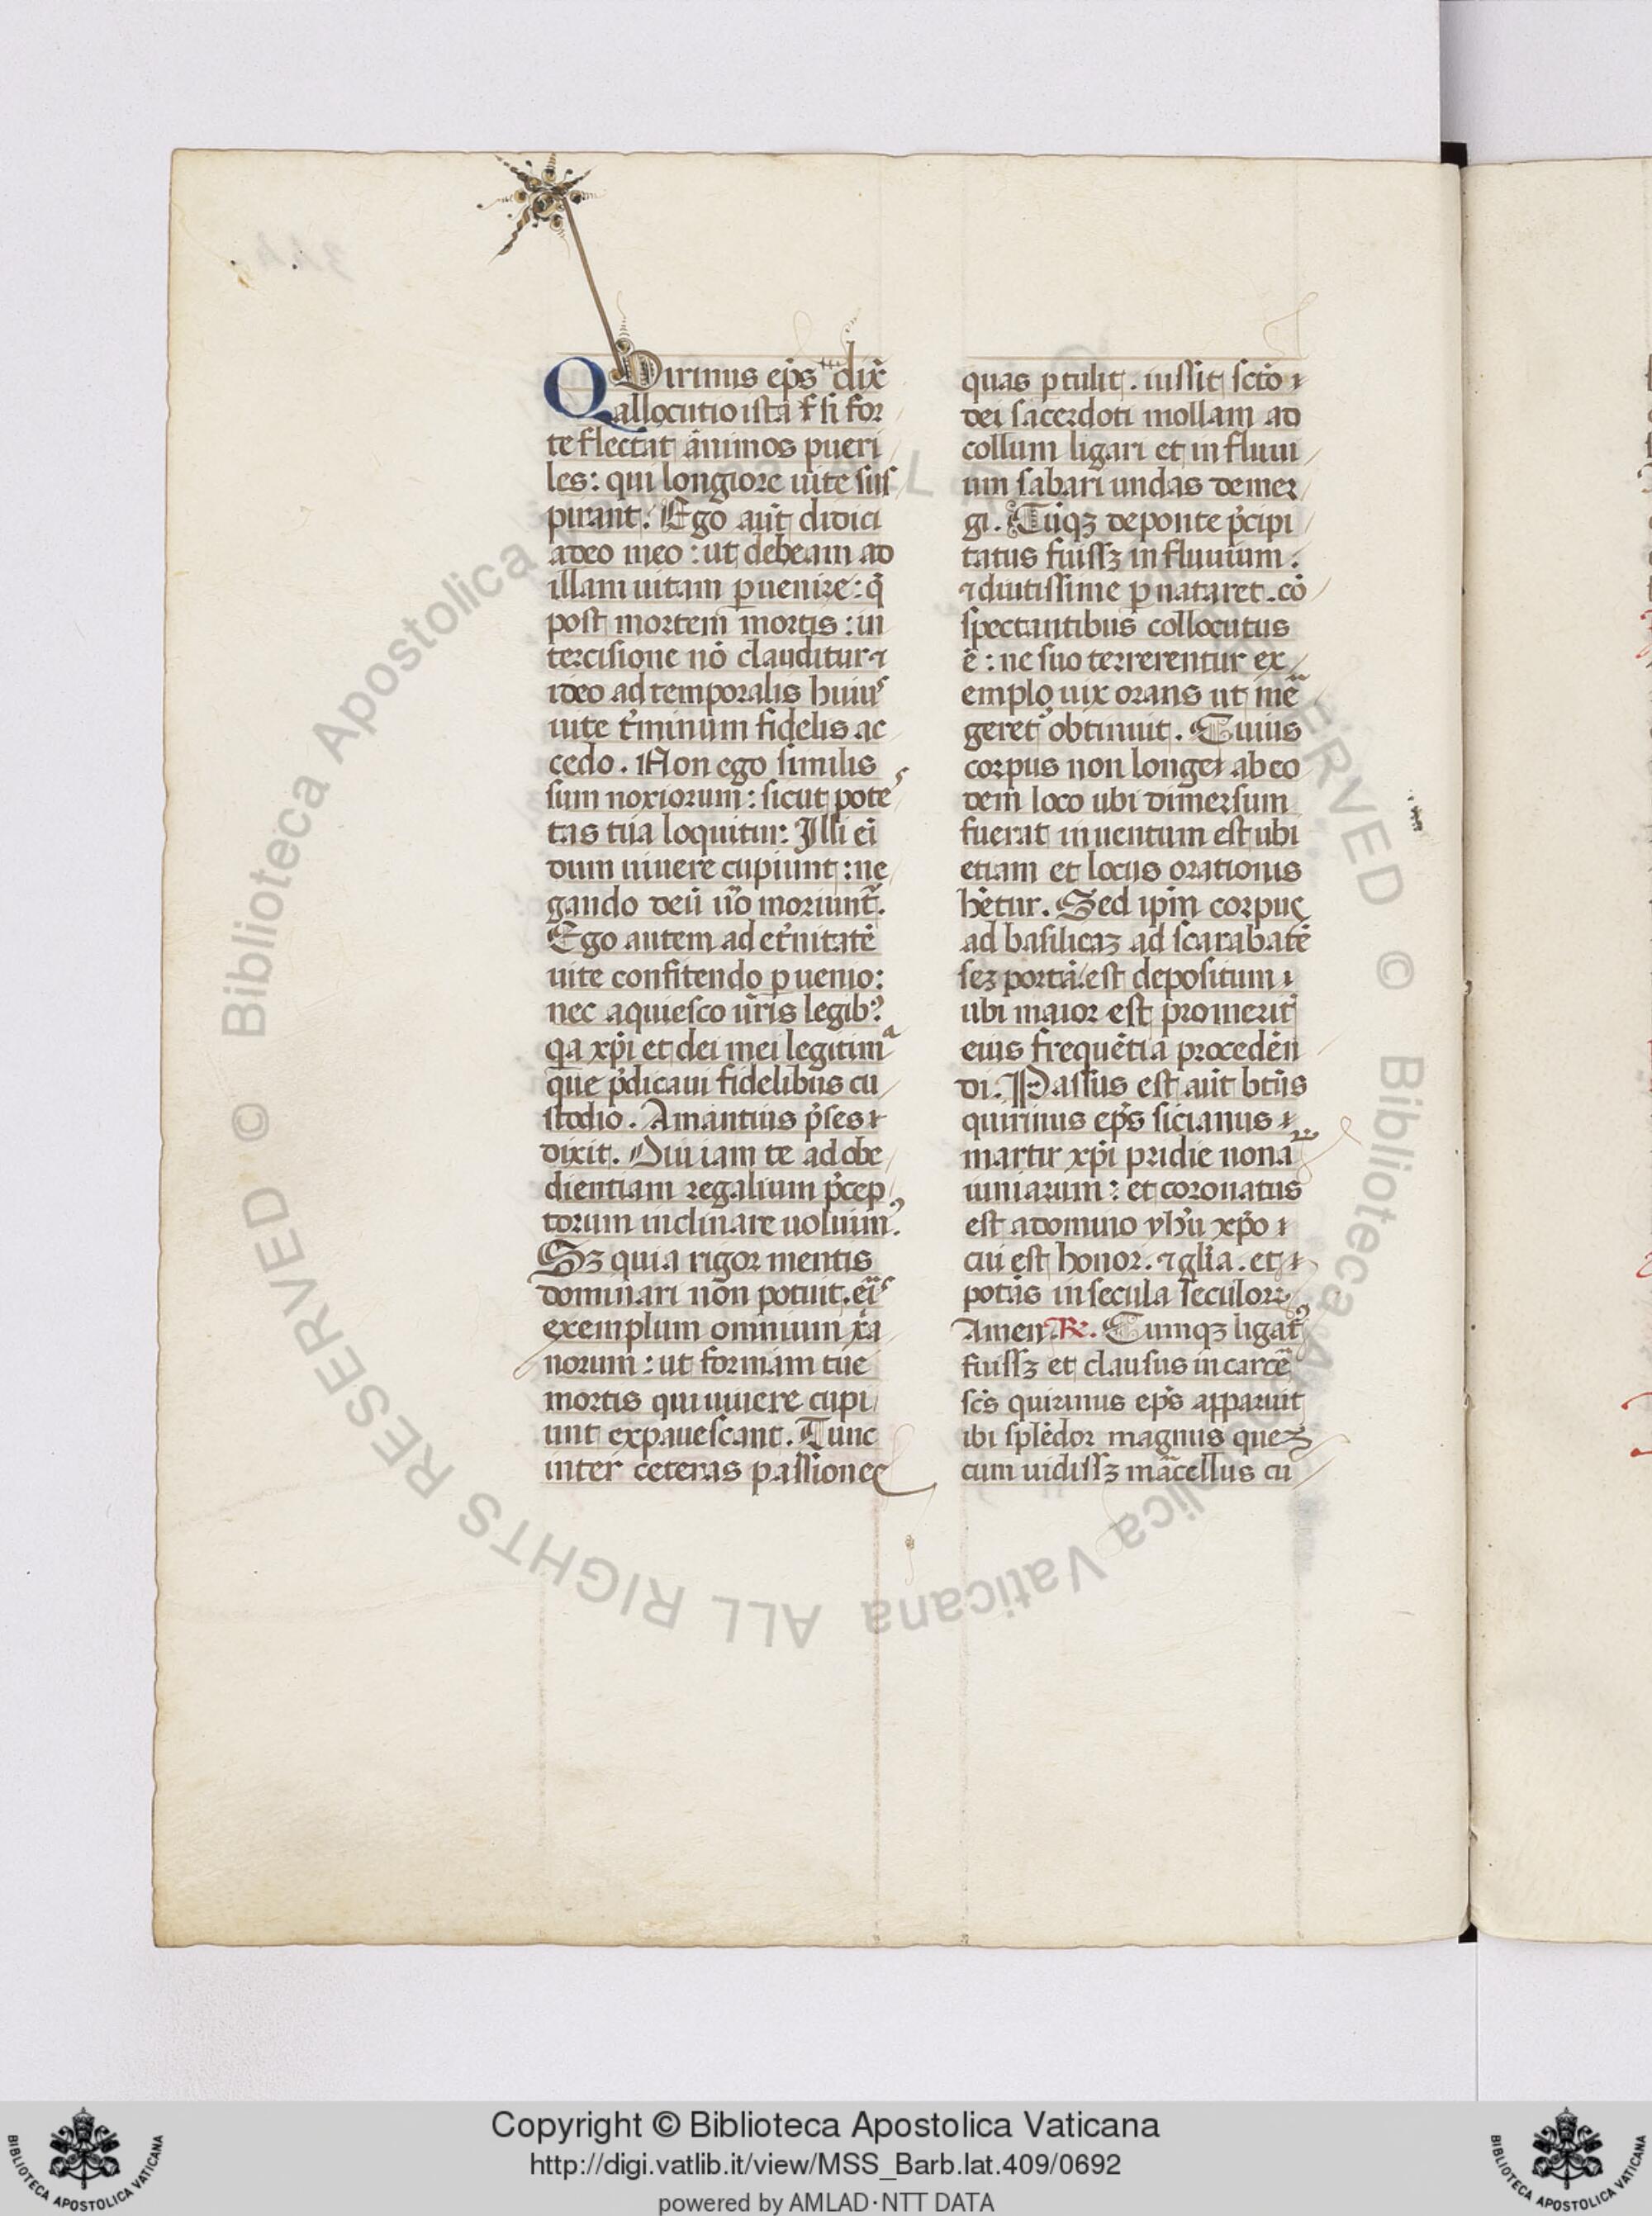 QUirinus ep̄s dix̄
allocutio ista r̄ si for
te flectat animos pueri
les: qui longiore uite sus
pirant. Ego aūt didici
a deo meo: ut debeam ad
illam uitam ꝑuenire: q̄
post mortem mortis: in
tercisione nō clauditur ⁊
ideo ad temporalis huiuˢ
uite t̄minum fidelis ac
cedo. Non ego similis
sum noxiorum: sicut poteˢ
tas tua loquitur: Illi ei
dum uiuere cupiunt: ne
gando deū uōo moriunt̄.
Ego autem ad et̄nitatē
uite confitendo ꝑuenio:
nec aquiesco ūris legibꝰ:
qͣ xp̄i et dei mei legitimᵃ
que p̄dicaui fidelibus cu
stodio. Amantius p̄ses
dixit. Diu iam te ad obe
dientiam regalium p̄cep
torum inclinare uoluimꝰ.
Sꝫ quia rigor mentis
dominari non potuit. eiˢ
exemplum omnium xr̄a
norum: ut formam tue
mortis qui uiuere cupi
unt expauescant. Tunc
inter ceteras passiones
quas ꝑtulit. iussit sctō
dei sacerdoti mollam ad
collum ligari et in fluui
um sabari undas demer
gi. Cūqꝫ de ponte p̄cipi
tatus fuissꝫ in fluuium:
⁊ diutissime ꝑnataret. cō
spectantibus collocutus
ē: ne suo terrerentur ex
emplo uix orans ut mē
geretꝰ obtinuit. Cuius
corpus non longe ab eo
dem loco ubi dimersum
fuerat inuentum est ubi
etiam et locus orationis
hētur. Sed ip̄m corpus
ad basilicaꝫ ad scarabatē
seꝫ portā. est depositum
ubi maior est pro merit̄
eius frequētia procedēn
di. Passus est aūt btūs
quirinus ep̄s sicianus
martir xp̄i pridie nonaꝝ
iuniarum: et coronatus
est a domino yhū xpō
cui est honor. ⁊ glīa. et
potās in secula seculoꝝ
Amen. ℞. Cumqꝫ ligatꝰ
fuissꝫ et clausus in carcē
sc̄s quirinus ep̄s apparuit
ibi splēdor magnus queꝫ
cum uidissꝫ mācellus cu
Copyright © Biblioteca Apostolica Vaticana
http://digi.vatlib.it/view/MSS_Barb.lat.409/0692
powered by AMLAD·NTT DATA
BIBLIOTECA APOSTOLICA VATICANA
BIBLIOTECA APOSTOLICA VATICANA
© Biblioteca Apostolica Vaticana ALL RIGHTS RESERVED
© Biblioteca Apostolica Vaticana ALL RIGHTS RESERVED